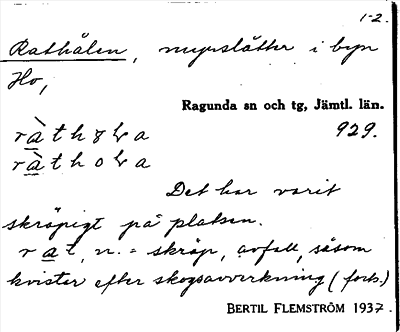 1-2.
Rathålen, myrslåtter i byn
Ho,
Ragunda sn och tg, Jämtl. län.
929.
Det har varit
skräpigt på platsen.
rat, n. = skräp, avfall, såsom
kvister efter skogsavverkning (forts.)
BERTIL FLEMSTRÖM 1937.